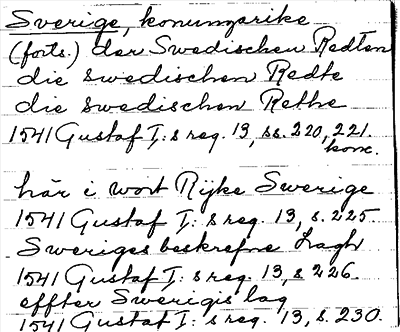 Sverige, konungarike
(forts.) der Swedischen Redten
die swedischen Redte
die swedischen Rethe
1541 Gustaf I:s reg. 13, ss. 220, 221.
konc.
här i wort Rijke Swerige
1541 Gustaf I:s reg. 13, s. 225.
Sweriges beskrefne Lagh
1541 Gustaf I:s reg. 13, s 226.
effter Swerigis lag
1541 Gustaf I:s reg. 13, s. 230.